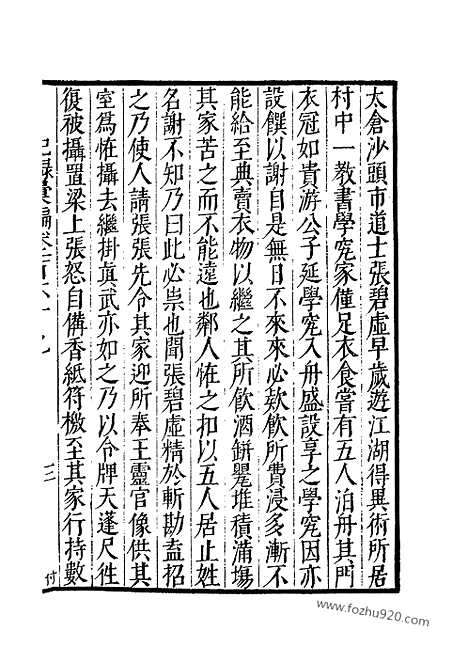 太倉沙頭市道士張碧虛早歲遊江湖得異術所居
村中一教書學究家僅足衣食嘗有五人泊舟其門
衣冠如貴游公子延學究入舟盛設享之學究因亦
設饌以謝自是無日不來來必款飲所費浸多漸不
能給至典賣衣物以繼之其所飲酒缾罌堆積滿塲
其家苦之而不能遠也鄰人恠之扣以五人居止姓
名謝不知乃曰此必祟也聞張碧虛精於斬勘盍招
之乃使人請張張先令其家迎所奉王靈官像供其
室爲恠攝去繼掛眞武亦如之乃以令牌天蓬尺徃
復被攝置梁上張怒自備香紙符檄至其家行持數
紀錄彙編卷二百六十九
三
付
www.fozhu920.com